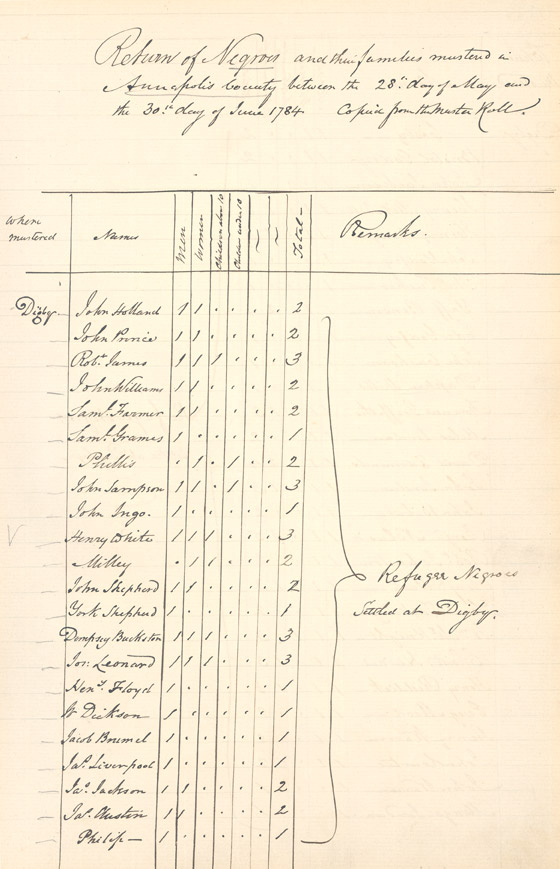 Return of Negroes and their families mustered in
Annapolis County between the 28th day of May and
the 30th day of June 1784 Copied from the Muster Roll.
Where mustered Names Men Women Children above 10 Children under 10 Total Remarks.
Digby John Holland 1 1 . . . . 2
John Prince 1 1 . . . . 2
Robt. James 1 1 1 . . . 3
John Williams 1 1 . . . . 2
Saml. Farmer 1 1 . . . . 2
Saml. Grames 1 . . . . . 1
Phillis . 1 . 1 . . 2
John Sampson 1 1 . 1 . . 3
John Ingo. 1 . . . . . 1
Henry White 1 1 1 . . . 3
Milley . 1 1 . . . 2
John Shepherd 1 1 . . . . 2
Refugee Negroes
York Shepherd 1 . . . . . 1
Settled at Digby.
Dempsey Buckston 1 1 1 . . . 3
Jos: Leonard 1 1 1 . . . 3
Heny. Floyd 1 . . . . . 1
Dickson 1 . . . . . 1
Jacob 1 . . . . . 1
Jas. Liverpool 1 . . . . . 1
Jas. Jackson 1 1 . . . . 2
Jas. Austin 1 1 . . . . 2
Philip 1 . . . . . 1